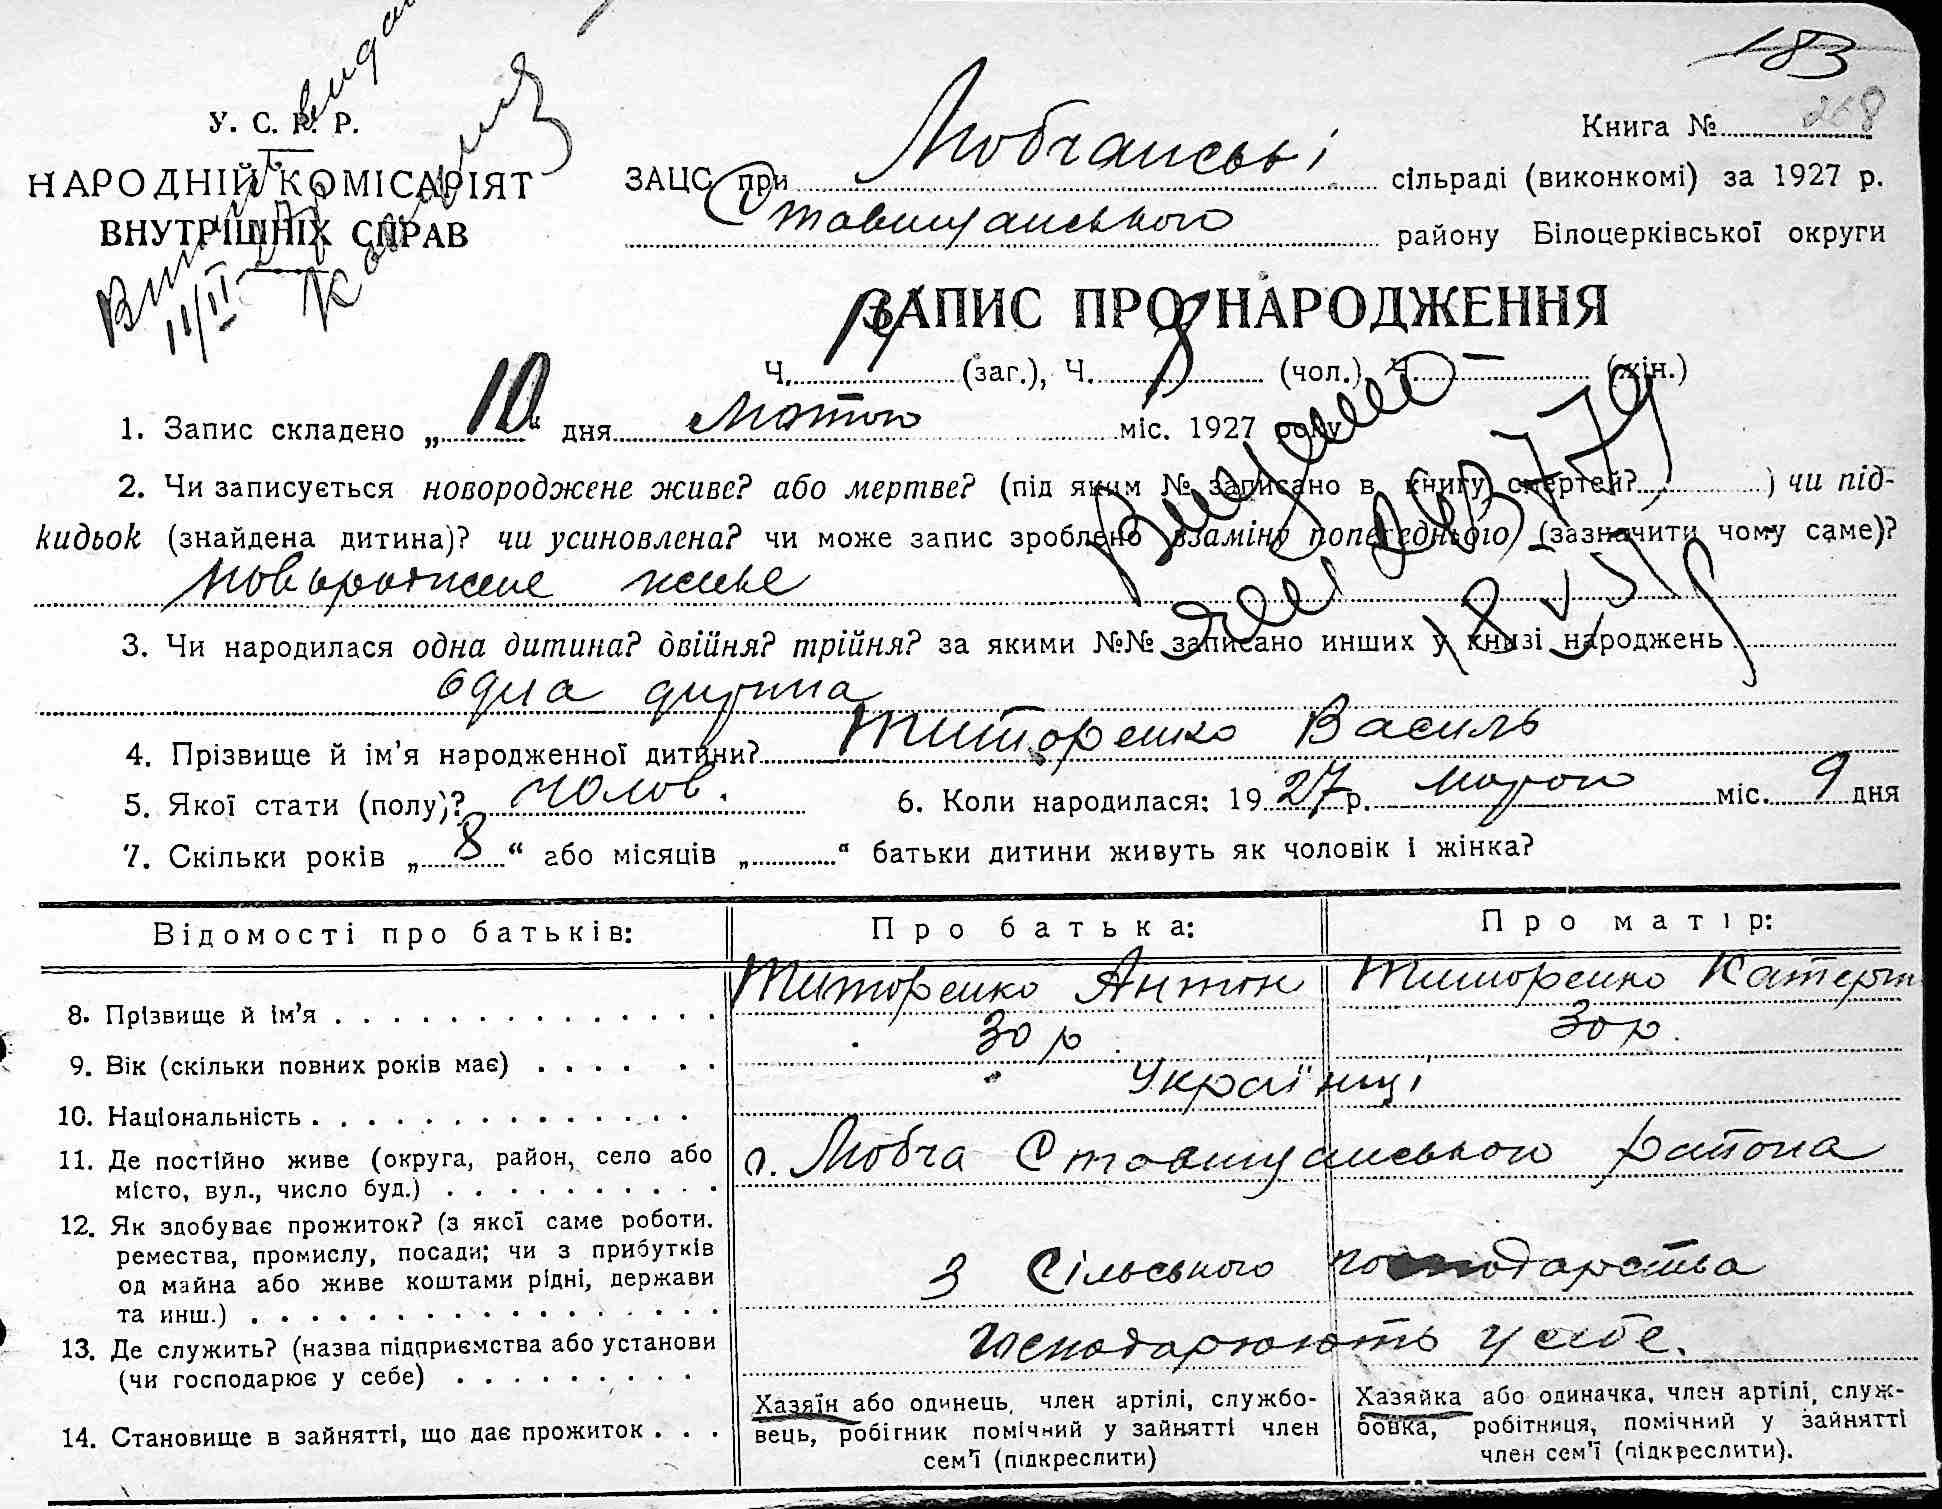 183
У. С. Р. Р.
НАРОДНІЙ КОМІСАРІЯТ
ВНУТРІШНІХ СПРАВ
Книга № 268
ЗАЦС при Любчанські сільраді (виконкомі) за 1927 р.
Ставищанського району Білоцерківської округи
ЗАПИС ПРО НАРОДЖЕННЯ
Ч. (заг.), Ч. 8 (чол.), Ч. – (жін.)
1. Запис складено „10“ дня лютого міс. 1927 року
2. Чи записується новороджене живе? або мертве? (під яким № записано в книгу смертей? ) чи під-
кидьок (знайдена дитина)? чи усиновлена? чи може запис зроблено взаміну попереднього) (зазначити чому саме)?
новороджене живе
3. Чи народилася одна дитина? двійня? трійня? за якими №№ записано инших у книзі народжень
одна дитина
4. Прізвище й ім’я народженної дитини? Титоренко Василь
5. Якої стати (полу)? чолов. 6. Коли народилася: 1927 р. лютого міс. 9 дня
7. Скільки років „8“ або місяців „ “ батьки дитини живуть як чоловік і жінка?
Відомості про батьків: Про батька: Про матір:
8. Прізвище й ім’я Титоренко Антон Титоренко Катерин
9. Вік (скільки повних років має) 30 р. 30 р.
10. Національність Українці
11. Де постійно живе (округа, район, село або
місто, вул., число буд.) с. Любча Ставищанського района
12. Як здобуває прожиток? (з якої саме роботи.
ремества, промислу, посади; чи з прибутків
од майна або живе коштами рідні, держави
та инш.) З Сільського господарства
13. Де служить? (назва підприємства або установи
(чи господарює у себе) господарюють у себе.
14. Становище в зайнятті, що дає прожиток
Хазяїн або одинець, член артілі, службо-
вець, робігник помічний у зайнятті член
сем’ї (підкреслити)
Хазяйка або одиначка, член артілі, служ-
бовка, робітниця, помічний у зайнятті
член сем’ї (підкреслити).